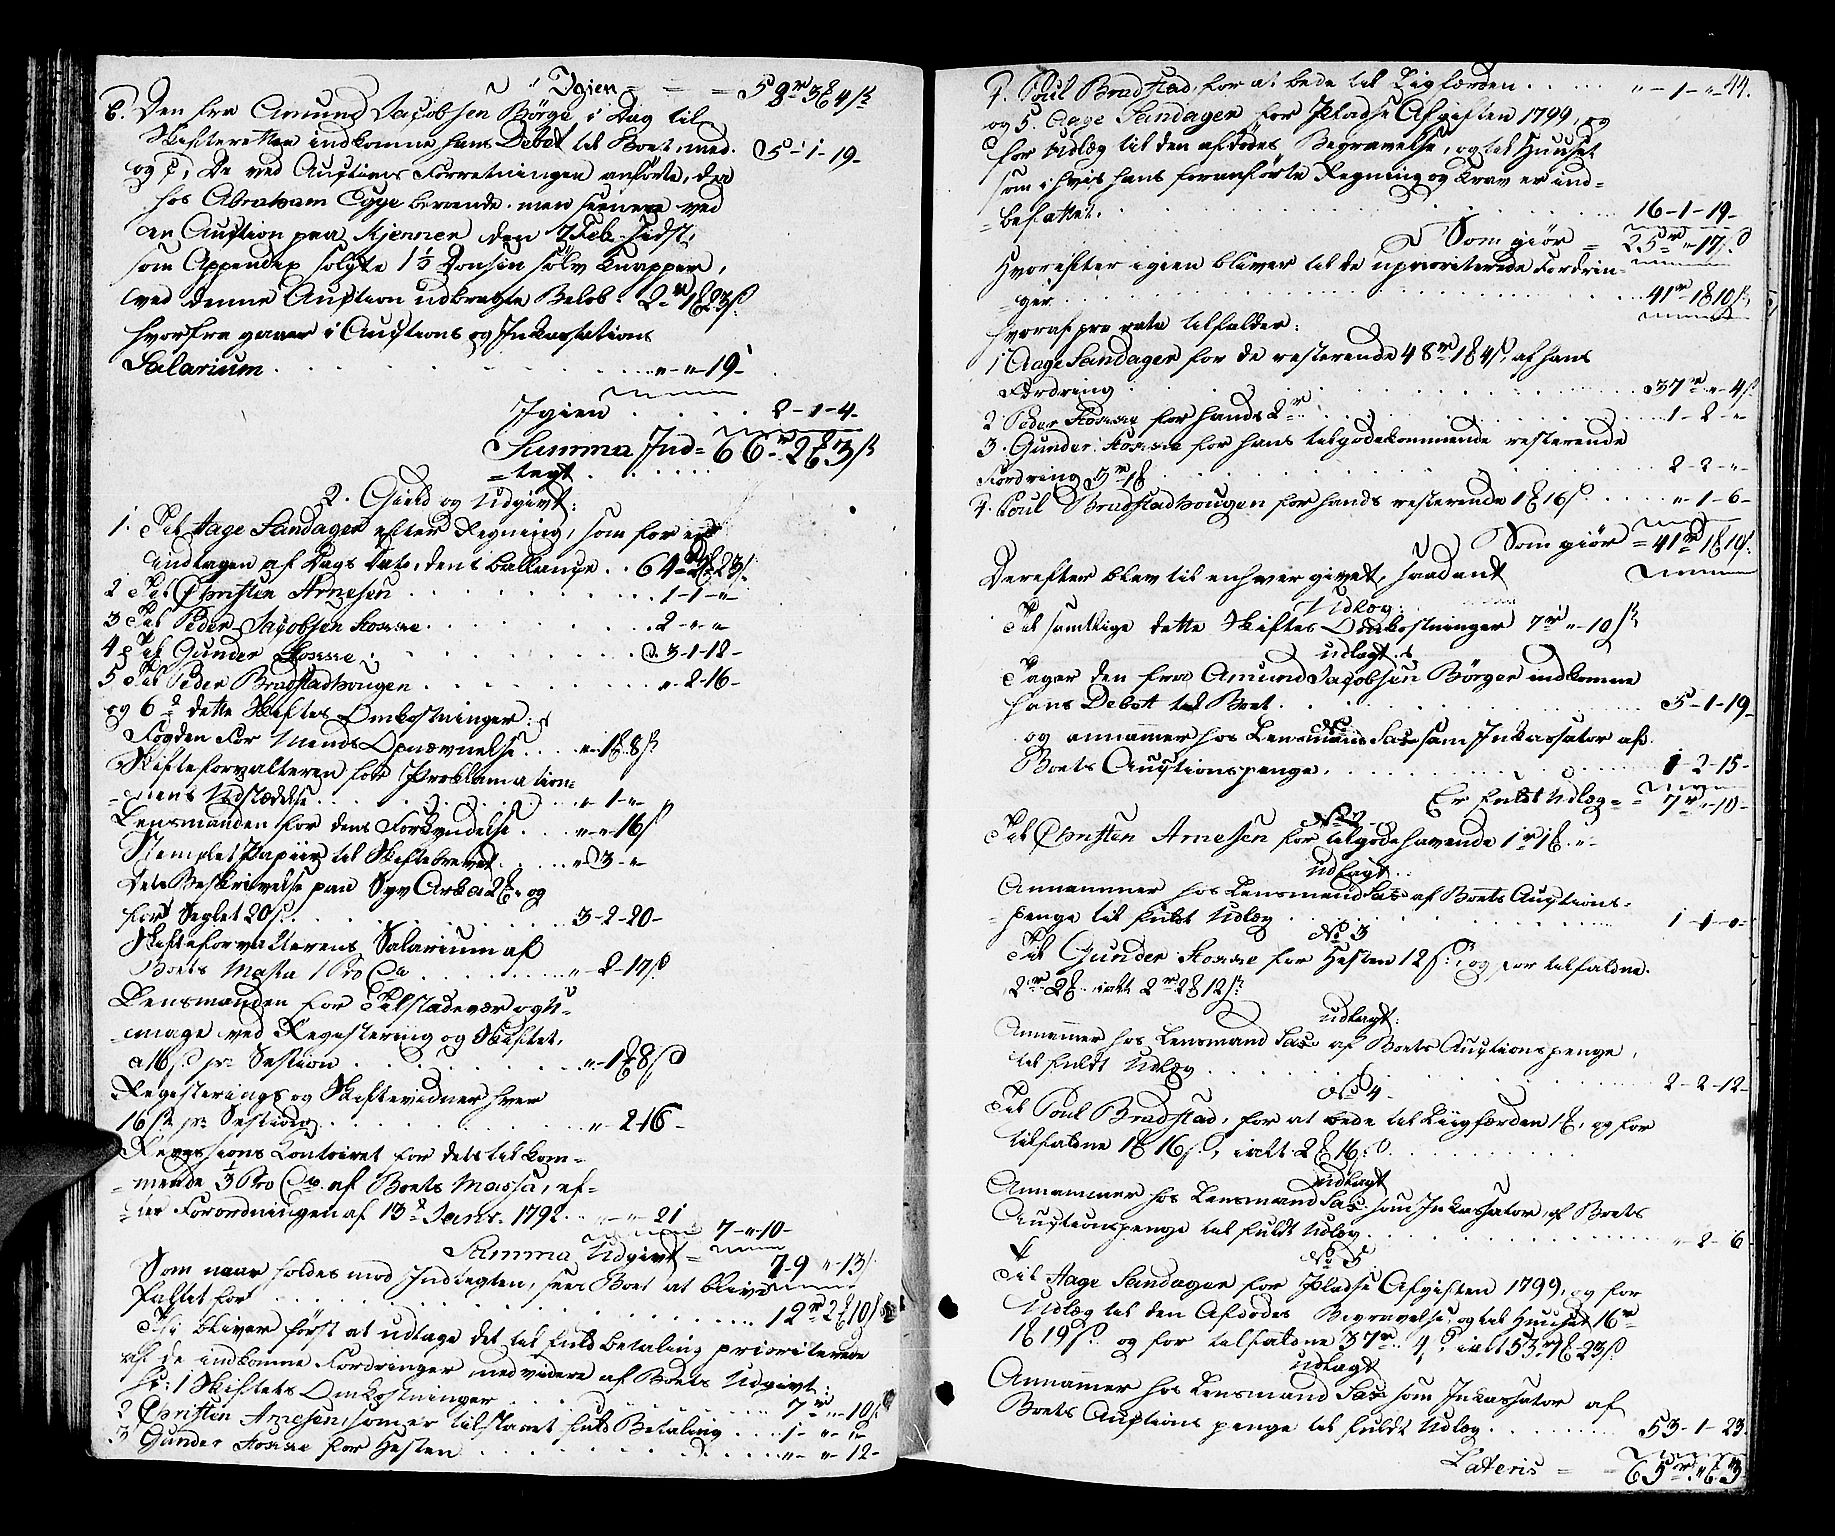 Igien = = = 58 rd 3 ß 4 ß
6. Den fra Amund Jacobsen Börge, i Dag til
Skifteretten indkomne hans Debet til Boet, med. 5-1-19-
og 7, De ved Auctions Forretningen anförte, der
hos Abraham Egge beroende men senere ved
en Auction paa Kjenner den 7 Feb. sidst,
som Appendix solgte 1 1/2 Donsin sölv Knapper,
ved denne Auction udbragte Belöb. 2 rd 1 23 ß
hvorfra gaaer i Auctions og Inkassations
Salarium . . . . „-„ 19-
Igien . . . . 2-1-4-
Summa Ind= 66 rd 2 3 ß
=tegt . . . .
2. Gield og Udgivt:
1. Til Aage Sandager efter Regning, som for er
indtagen af Dags Dato, dens ballange . . 64-2-23 ß
2 Til Christen Arnesen . . . . 1-1-„
3 Til Peder Jacobsen . . . . 2-„-„
4 Til Gunder . . . . 3-1-18-
5 Til Peder Bradstadhougen . . . . „-2-16-
og 6 dette Skiftes Omkostninger:
Fogden for Mends Opnævnelse . . . „-1-8 ß
Skifteforvalteren for Proklamatio-
nens Udstædelse . . . . „-1-„
Lensmanden for dens Forkyndelse . . . „-„-16 ß
Stemplet Papiir til Skiftebrevet . . . . „-3-„
Dets Beskrivelse paa Syv Ark a 2 og
for Seglet 20 ß . . . . 3-2-20-
Skifteforvalterens Salarium af
Boets Massa 1 Pro Cto . . . . „-2-17 ß
Lensmanden for Tilstædevær og U-
mage ved Registering og Skiftet,
a 16 ß pr Session . . . . „-1-8 ß
Registerings og Skiftevidner hver
16 ß pr Session . . . . „-2-16-
Revisions Kontoiret for dets tilkom-
mende 1/3 Pro Cto af Boets Massa, ef-
ter Forordningen af 13 Janr. 1792 . . „-„-21
7-„-10-
Summa Udgivt = 79-„-13 ß
Som naar holdes mod Indtegten, sees Boet at blive
fallit for . . . . 12 rd 2 10 ß
Thi bliver först at udlage det til fuld betaling prioriterede
af de indkomne Fordringer med videre af Boets Udgivt:
No: 1 Skiftets Omkostninger . . . . 7 rd „-10 ß
2 Christen Arnesen, som er tilstaaet fuld Betaling . . . 1-„-
3 Gunder for Hesten . . . . „-„-12-
44.
4. Poul Bradstad for at bede til Liigfærden . . . . „-1-„
og 5. Aage Sandager for Pladse Afgiften 1799, og
for Udlæg til den afdödes Begravelse, og til Huuset
som i hvis hans foranförte Regning og Krav er ind=
=befattet. . . . . 16-1-19-
Som giör = 25 rd „-17 ß
Hvorefter igien bliver til de uprioriterede Fordrin=
=ger . . . . 41 rd 1 10 ß
hvoraf pro rata tilfalder:
1 Aage Sandager for de resterende 48 rd 1 4 ß, af hans
Fordring . . . . 37 rd „-4 ß
2 Peder for hands 2 rd . . . . 1-2-„
3. Gunder for hans tilgodekommende resterende
Fordring 3 rd 1 . . . . 2-2-„
4. Poul Bradstadhougen for hands resterende 1 16 ß . . . . „-1-6-
Som giör = 41 rd 1 10 ß
Derefter blev til enhver givet, saadant
Udlæg:
Til samtlige dette Skiftes Omkostninger 7 rd „-10 ß
udlagt:
Tager den fra Amund Jacobsen Börger indkomne
hans Debet til Boet . . . . 5-1-19-
og annammer hos Lensmand som Inkassator af
Boets Auctionspenge . . . . 1-2-15-
Er fuldt Udlæg = 7 rd „-10-
No 2
Til Christen Arnesen for tilgodehavende 1 rd 1 „
udlagt
Annammer hos Lensmand af Boets Auctions=
=penge til fuldt Udlæg . . . . 1-1-„-
No 3
Til Gunder for Hesten 12 ß, og for tilfaldne
2 rd 2 ialt 2 rd 2 12 ß
udlagt:
Annammer hos Lensmand af Boets Auctionspenge,
til fuldt Udlæg . . . . 2-2-12-
No 4
Til Poul Bradstad, for at bede til Liigfærden 1, og for
tilfaldne 1 16 ß, ialt 2 16 ß
udlagt
Annammer hos Lensmand som Inkassator, af Boets
Auctionspenge til fuldt Udlæg . . . . „-2-6
No 5
Til Aage Sandager for Pladse Afgiften 1799, og for
Udlæg til den Afdödes Begravelse, og til Huuset 16 rd
1 19 ß og for tilfaldne 37 rd „ 4 ß ialt 53 rd 1 23 ß
udlagt
Annammer hos Lensmand som Inkassator af
Boets Auctions penge til fuldt Udlæg . . . . 53-1-23
Lateris = = 65 rd „ 3